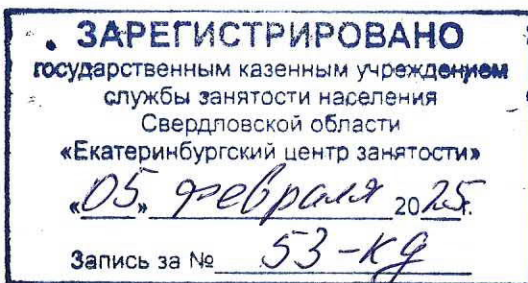 ЗАРЕГИСТРИРОВАНО
государственным казенным учреждением
службы занятости населения
Свердловской области
«Екатеринбургский центр занятости»
«05» февраля 2025г.
Запись за № 53-кд